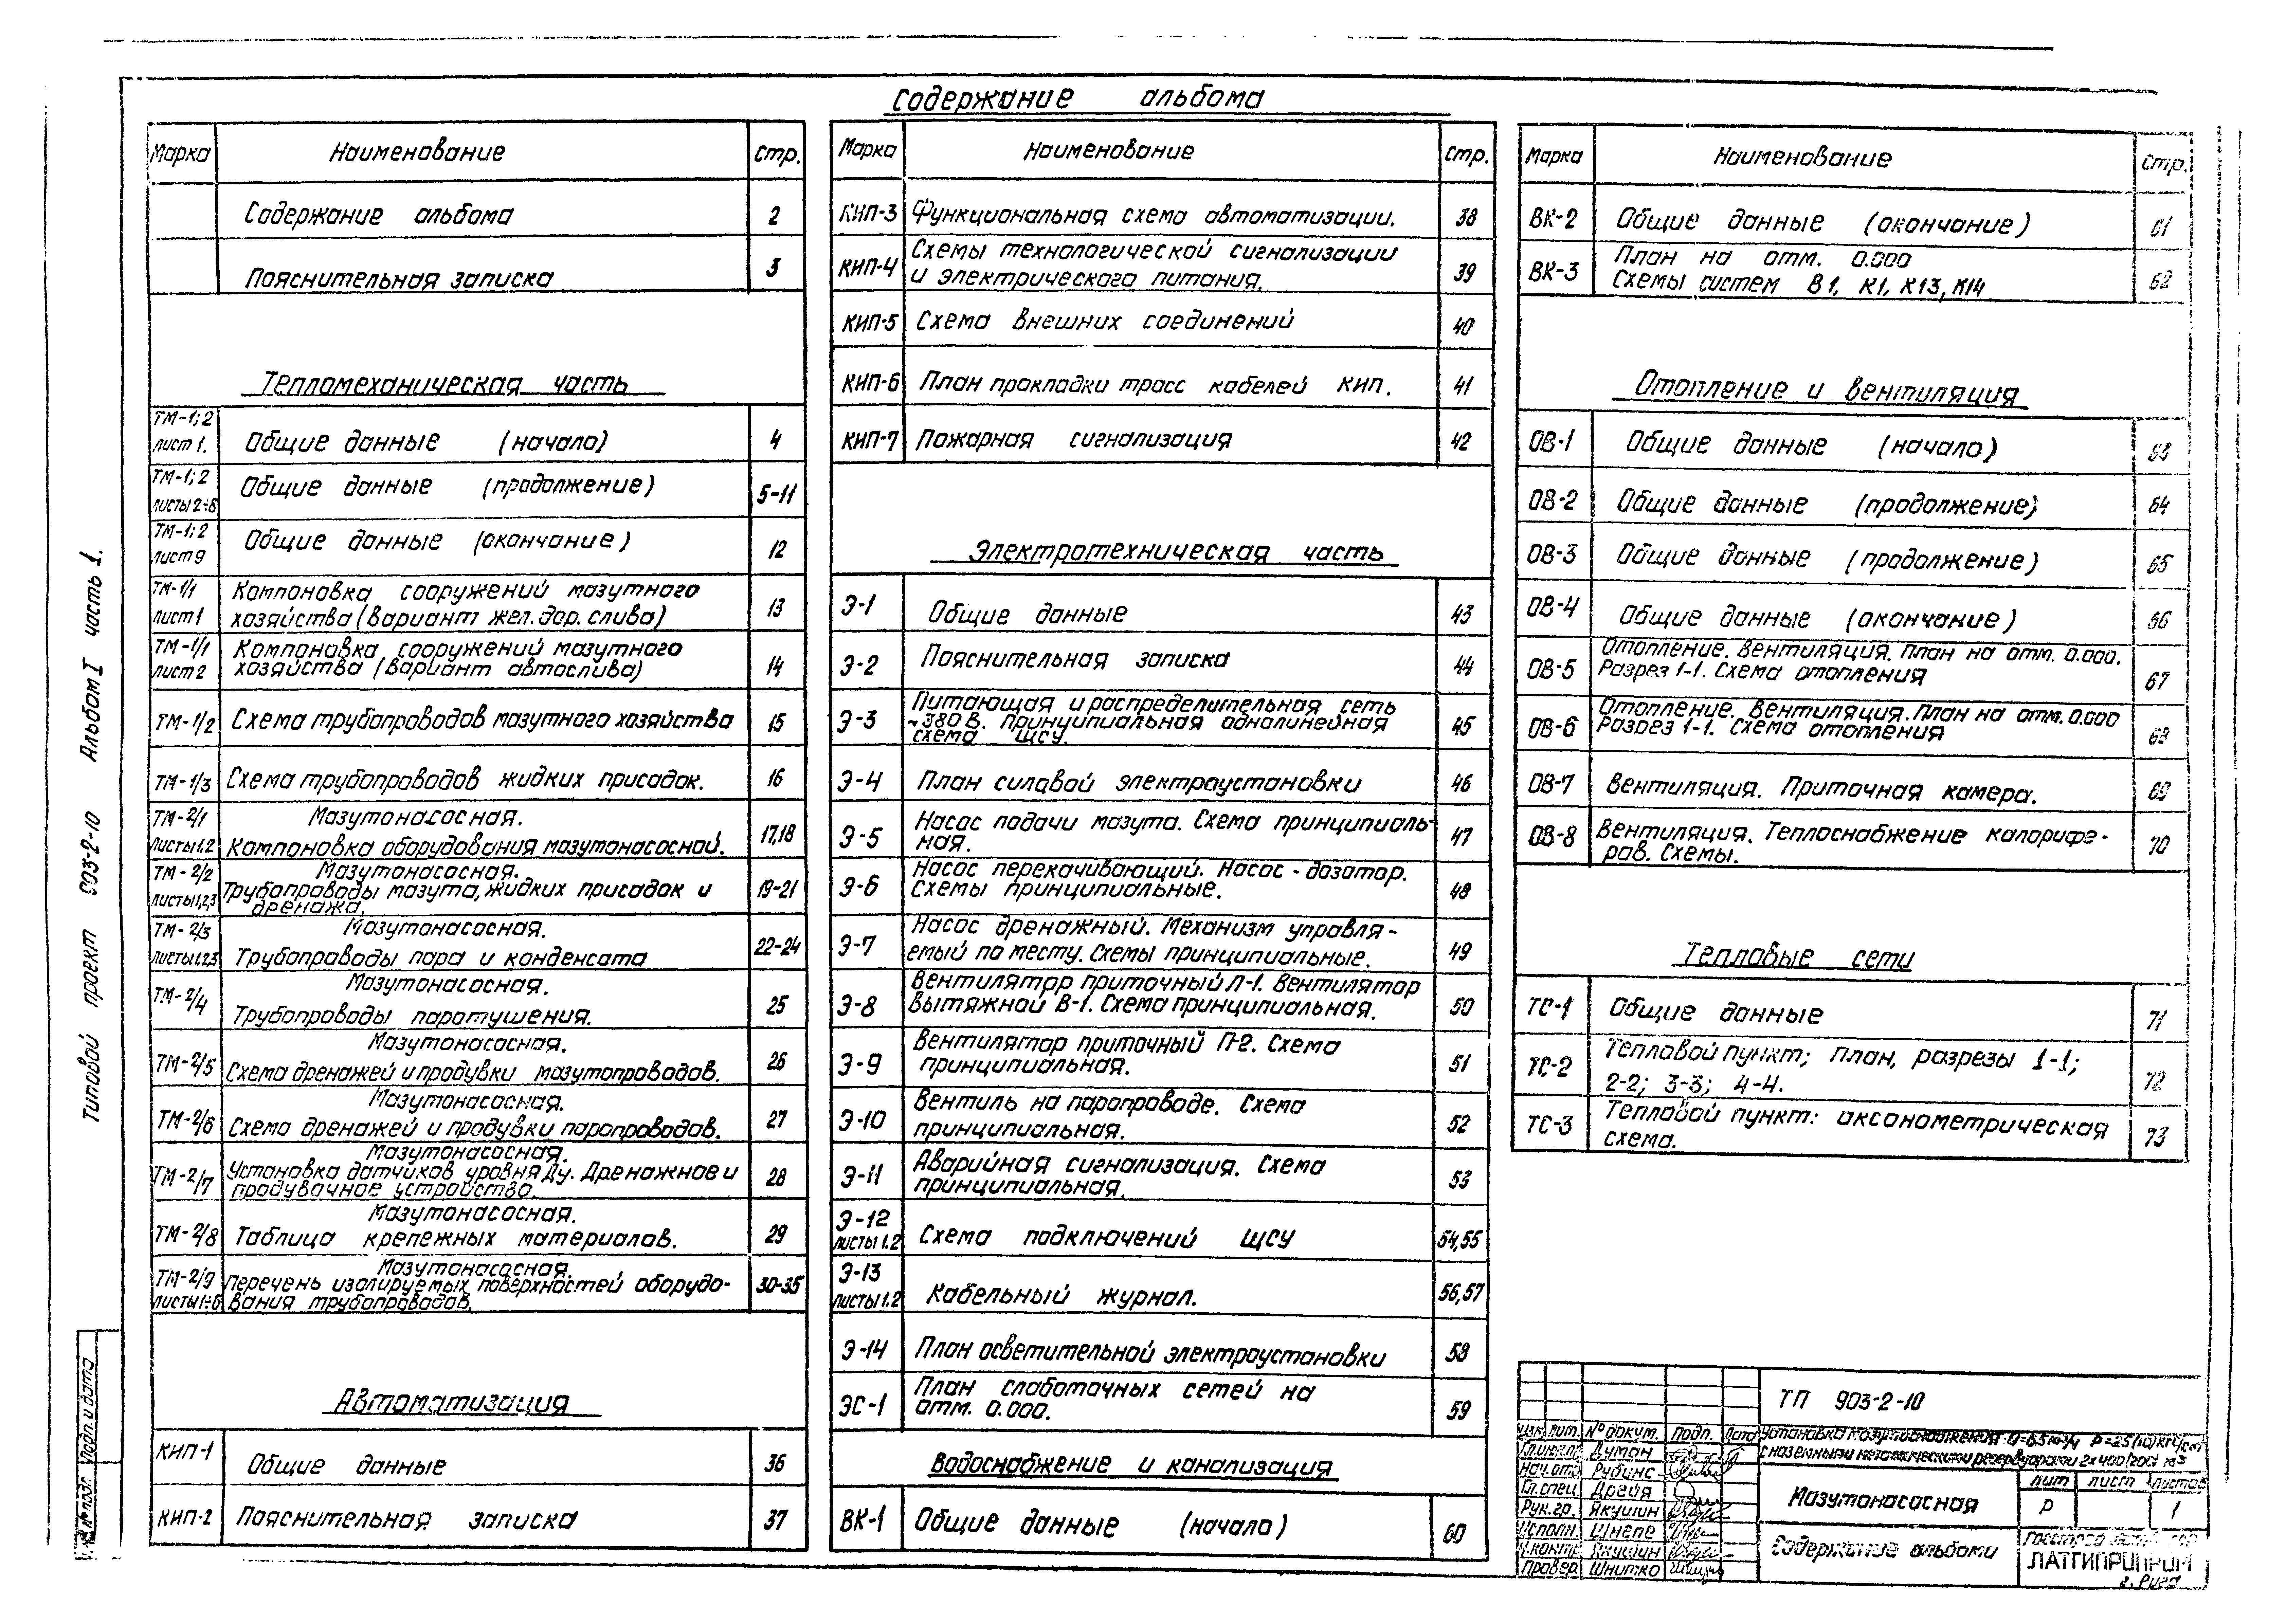 Содержание альбома
Марка Наименование Стр.
Содержание альбома 2
Пояснительная записка 3
Тепломеханическая часть
ТМ-1; 2 лист 1. Общие данные (начало) 4
ТМ-1; 2 листы 2÷8 Общие данные (продолжение) 5-11
ТМ-1; 2 лист 9 Общие данные (окончание) 12
ТМ-1/1 лист 1 Компоновка сооружений мазутного
хозяйства (вариант жел. дор. слива) 13
ТМ-1/1 лист 2 Компоновка сооружений мазутного
хозяйства (вариант автослива) 14
ТМ-1/2 Схема трубопроводов мазутного хозяйства 15
ТМ-1/3 Схема трубопроводов жидких присадок. 16
ТМ-2/1 листы 1.2 Мазутонасосная.
Компоновка оборудования мазутонасосной. 17,18
ТМ-2/2 листы 1,2,3 Мазутонасосная.
Трубопроводы мазута, жидких присадок и
дренажа. 19-21
ТМ-2/3 листы 1.2,3 Мазутонасосная.
Трубопроводы пара и конденсата 22-24
ТМ-2/4 Мазутонасосная.
Трубопроводы паротушения. 25
ТМ-2/5 Мазутонасосная.
Схема дренажей и продувки мазутопроводов. 26
ТМ-2/6 Мазутонасосная.
Схема дренажей и продувки паропроводов. 27
ТМ-2/7 Мазутонасосная.
Установка датчиков уровня Ду. Дренажнов и
продувочное устройство. 28
ТМ-2/8 Мазутонасосная.
Таблица крепежных материалов. 29
ТМ-2/9 листы 1÷6 Мазутонасосная.
перечень изолируемых поверхностей оборудо-
вания трубопроводов. 30-35
Автоматизация
КИП-1 Общие данные 36
КИП-2 Пояснительная записка 37
Марка Наименование Стр.
КИП-3 Функциональная схема автоматизации. 38
КИП-4 Схемы технологической сигнализации
и электрического питания. 39
КИП-5 Схема внешних соединений 40
КИП-6 План прокладки трасс кабелей КИП. 41
КИП-7 Пожарная сигнализация 42
Электротехническая часть
Э-1 Общие данные 43
Э-2 Пояснительная записка 44
Э-3 Питающая и распределительная сеть
~380 В. Принципиальная однолинейная
схема ЩСУ. 45
Э-4 План силовой электроустановки 46
Э-5 Насос подачи мазута. Схема принципиаль-
ная. 47
Э-6 Насос перекачивающий. Насос-дозатор.
Схемы принципиальные. 48
Э-7 Насос дренажный. Механизм управля-
емый по месту. Схемы принципиальные. 49
Э-8 Вентилятор приточный П-1. Вентилятор
вытяжной В-1. Схема принципиальная. 50
Э-9 Вентилятор приточный П-2. Схема
принципиальная. 51
Э-10 Вентиль на паропроводе. Схема
принципиальная. 52
Э-11 Аварийная сигнализация. Схема
принципиальная. 53
Э-12 листы 1.2 Схема подключений ЩСУ 54,55
Э-13 листы 1.2 Кабельный журнал. 56,57
Э-14 План осветительной электроустановки 58
ЭС-1 План слаботочных сетей на
отм. 0.000. 59
Водоснабжение и канализация
ВК-1 Общие данные (начало) 60
Марка Наименование Стр.
ВК-2 Общие данные (окончание) 61
ВК-3 План на отм. 0.000
Схемы систем В1, К1, К13, К14 62
Отопление и вентиляция
ОВ-1 Общие данные (начало) 63
ОВ-2 Общие данные (продолжение) 64
ОВ-3 Общие данные (продолжение) 65
ОВ-4 Общие данные (окончание) 66
ОВ-5 Отопление. Вентиляция. План на отм. 0.000.
Разрез 1-1. Схема отопления 67
ОВ-6 Отопление. Вентиляция. План на отм. 0.000
Разрез 1-1. Схема отопления 68
ОВ-7 Вентиляция. Приточная камера. 69
ОВ-8 Вентиляция. Теплоснабжение калорифе-
ров. Схемы. 70
Тепловые сети
ТС-1 Общие данные 71
ТС-2 Тепловой пункт; план, разрезы 1-1;
2-2; 3-3; 4-4. 72
ТС-3 Тепловой пункт: аксонометрическая
схема. 73
Типовой проект 903-2-10 Альбом I часть 1.
Подп. и дата
№ подл.
ТП 903-2-10
Изм. Лит. № докум. Подп. Дата
Установка мазутоснабжения Q=6,5 м³/ч P=25(10) кгс/см²
с наземными металлическими резервуарами 2×400/200/ м³
Думан
Нач. отд. Рубинс
Гл. спец. Дрейя
Рук. гр. Якушин
Исполн. Шнепе
Н. контр. Якушин
Провер. Шнитко
Мазутонасосная
Лит Лист Листов
Р 1
Содержание альбома
Госстрой
ЛАТГИПРОПРОМ
г. Рига